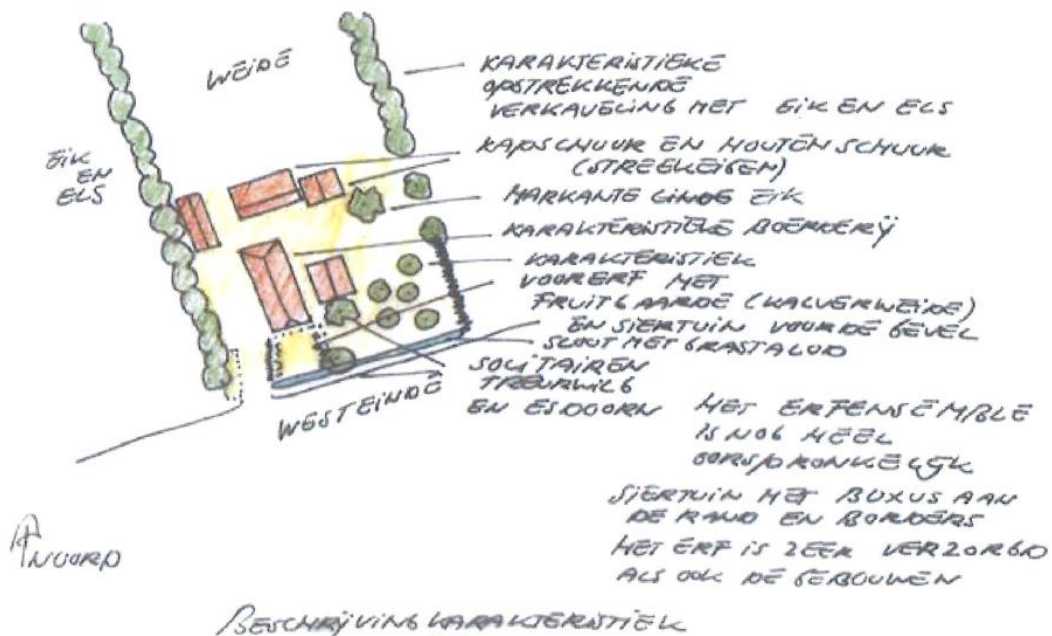 WEIDE
EIK
EN
ELS
KARAKTERISTIEKE
OPSTREKKENDE
VERKAVELING MET EIK EN ELS
KAPSCHUUR EN HOUTEN SCHUUR
(STREEKEIGEN)
MARKANTE LINDE EIK
KARAKTERISTIEKE BOERDERIJ
KARAKTERISTIEK
VOORERF MET
FRUITGAARDE (KALVERWEIDE)
EN SIERTUIN VOOR DE GEVEL
SLOOT MET GRASTALUD
SOLITAIREN
TREURWILG
EN ESDOORN
WESTEINDE
HET ERFENSEMBLE
IS NOG HEEL
OORSPRONKELIJK
SIERTUIN MET BUXUS AAN
DE RAND EN BORDERS
HET ERF IS ZEER VERZORGD
ALS OOK DE GEBOUWEN
NOORD
BESCHRIJVING KARAKTERISTIEK